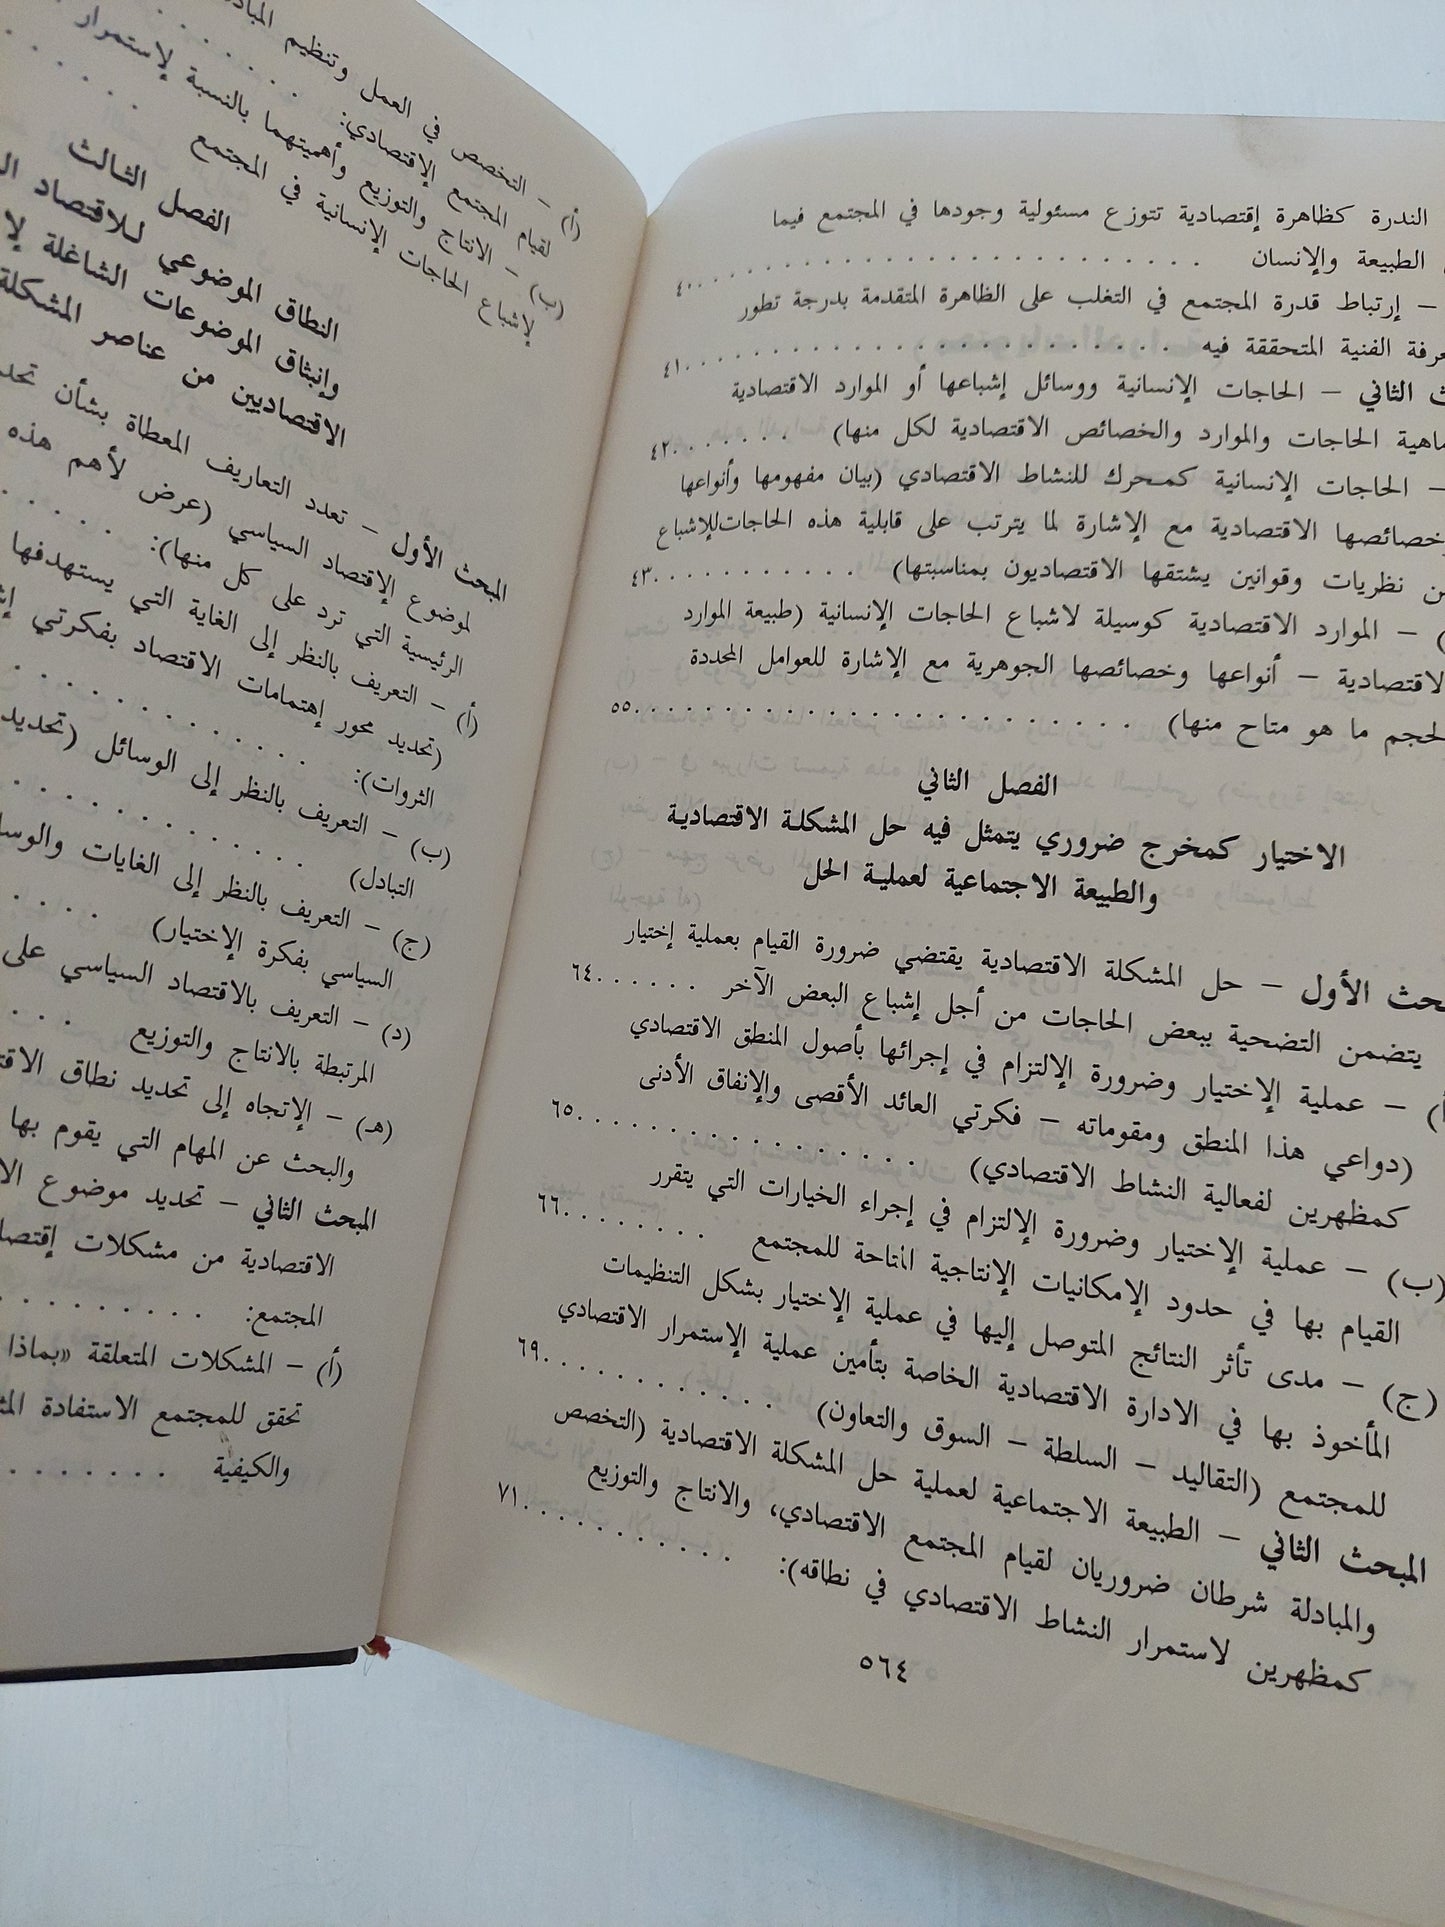 الندرة كظاهرة إقتصادية تتوزع مسئولية وجودها في المجتمع فيما
الطبيعة والإنسان . . . . . . . . . . . . . . . . . . . . . . ٤٠
– إرتباط قدرة المجتمع في التغلب على الظاهرة المتقدمة بدرجة تطور
الفنية المتحققة فيه . . . . . . . . . . . . . . . . . . . . . ٤١
الثاني – الحاجات الإنسانية ووسائل إشباعها أو الموارد الاقتصادية
الحاجات والموارد والخصائص الاقتصادية لكل منها) . . . . . . ٤٢
– الحاجات الإنسانية كمحرك للنشاط الاقتصادي (بيان مفهومها وأنواعها
خصائصها الاقتصادية مع الإشارة لما يترتب على قابلية هذه الحاجات للإشباع
نظريات وقوانين يشتقها الاقتصاديون بمناسبتها) . . . . . . . . . . . ٤٣
– الموارد الاقتصادية كوسيلة لاشباع الحاجات الإنسانية (طبيعة الموارد
الاقتصادية – أنواعها وخصائصها الجوهرية مع الإشارة للعوامل المحددة
لحجم ما هو متاح منها) . . . . . . . . . . . . . . . . . . . . . ٥٥
الفصل الثاني
الاختيار كمخرج ضروري يتمثل فيه حل المشكلة الاقتصادية
والطبيعة الاجتماعية لعملية الحل
الأول – حل المشكلة الاقتصادية يقتضي ضرورة القيام بعملية إختيار
يتضمن التضحية ببعض الحاجات من أجل إشباع البعض الآخر . . . . . . ٦٤
(أ) – عملية الإختيار وضرورة الإلتزام في إجرائها بأصول المنطق الاقتصادي
(دواعي هذا المنطق ومقوماته – فكرتي العائد الأقصى والإنفاق الأدنى
كمظهرين لفعالية النشاط الاقتصادي) . . . . . . . . . . . . . . . . ٦٥
(ب) – عملية الإختيار وضرورة الإلتزام في إجراء الخيارات التي يتقرر
القيام بها في حدود الإمكانيات الإنتاجية المتاحة للمجتمع . . . . . . . ٦٦
(ج) – مدى تأثر النتائج المتوصل إليها في عملية الإختيار بشكل التنظيمات
المأخوذ بها في الادارة الاقتصادية الخاصة بتأمين عملية الإستمرار الاقتصادي
للمجتمع (التقاليد – السلطة – السوق والتعاون) . . . . . . . . . . . ٦٩
المبحث الثاني – الطبيعة الاجتماعية لعملية حل المشكلة الاقتصادية (التخصص
والمبادلة شرطان ضروريان لقيام المجتمع الاقتصادي، والانتاج والتوزيع
كمظهرين لاستمرار النشاط الاقتصادي في نطاقه): . . . . . . . . . . . ٧١
٥٦٤
(أ) – التخصص في العمل وتنظيم
لقيام المجتمع الإقتصادي: . . . . . .
(ب) – الانتاج والتوزيع وأهميتهما بالنسبة لإستمرار
لإشباع الحاجات الإنسانية في المجتمع . . . . .
الفصل الثالث
النطاق الموضوعي للاقتصاد
وإنبثاق الموضوعات الشاغلة
الاقتصاديين من عناصر المشكلة
المبحث الأول – تعدد التعاريف المعطاة بشأن
لموضوع الإقتصاد السياسي (عرض لأهم هذه
الرئيسية التي ترد على كل منها): . . . . .
(أ) – التعريف بالنظر إلى الغاية التي يستهدفها
(تحديد محور إهتمامات الاقتصاد بفكرتي
الثروات): . . . . . . . . . . .
(ب) – التعريف بالنظر إلى الوسائل (تحديد
التبادل) . . . . . . . . . . .
(ج) – التعريف بالنظر إلى الغايات
السياسي بفكرة الإختيار) . . . .
(د) – التعريف بالاقتصاد السياسي على
المرتبطة بالانتاج والتوزيع . . . .
(هـ) – الإتجاه إلى تحديد نطاق
والبحث عن المهام التي يقوم بها
المبحث الثاني – تحديد موضوع
الاقتصادية من مشكلات
المجتمع: . . . . . . . . .
(أ) – المشكلات المتعلقة «بماذا
تحقق للمجتمع الاستفادة
والكيفية . . . . . . .